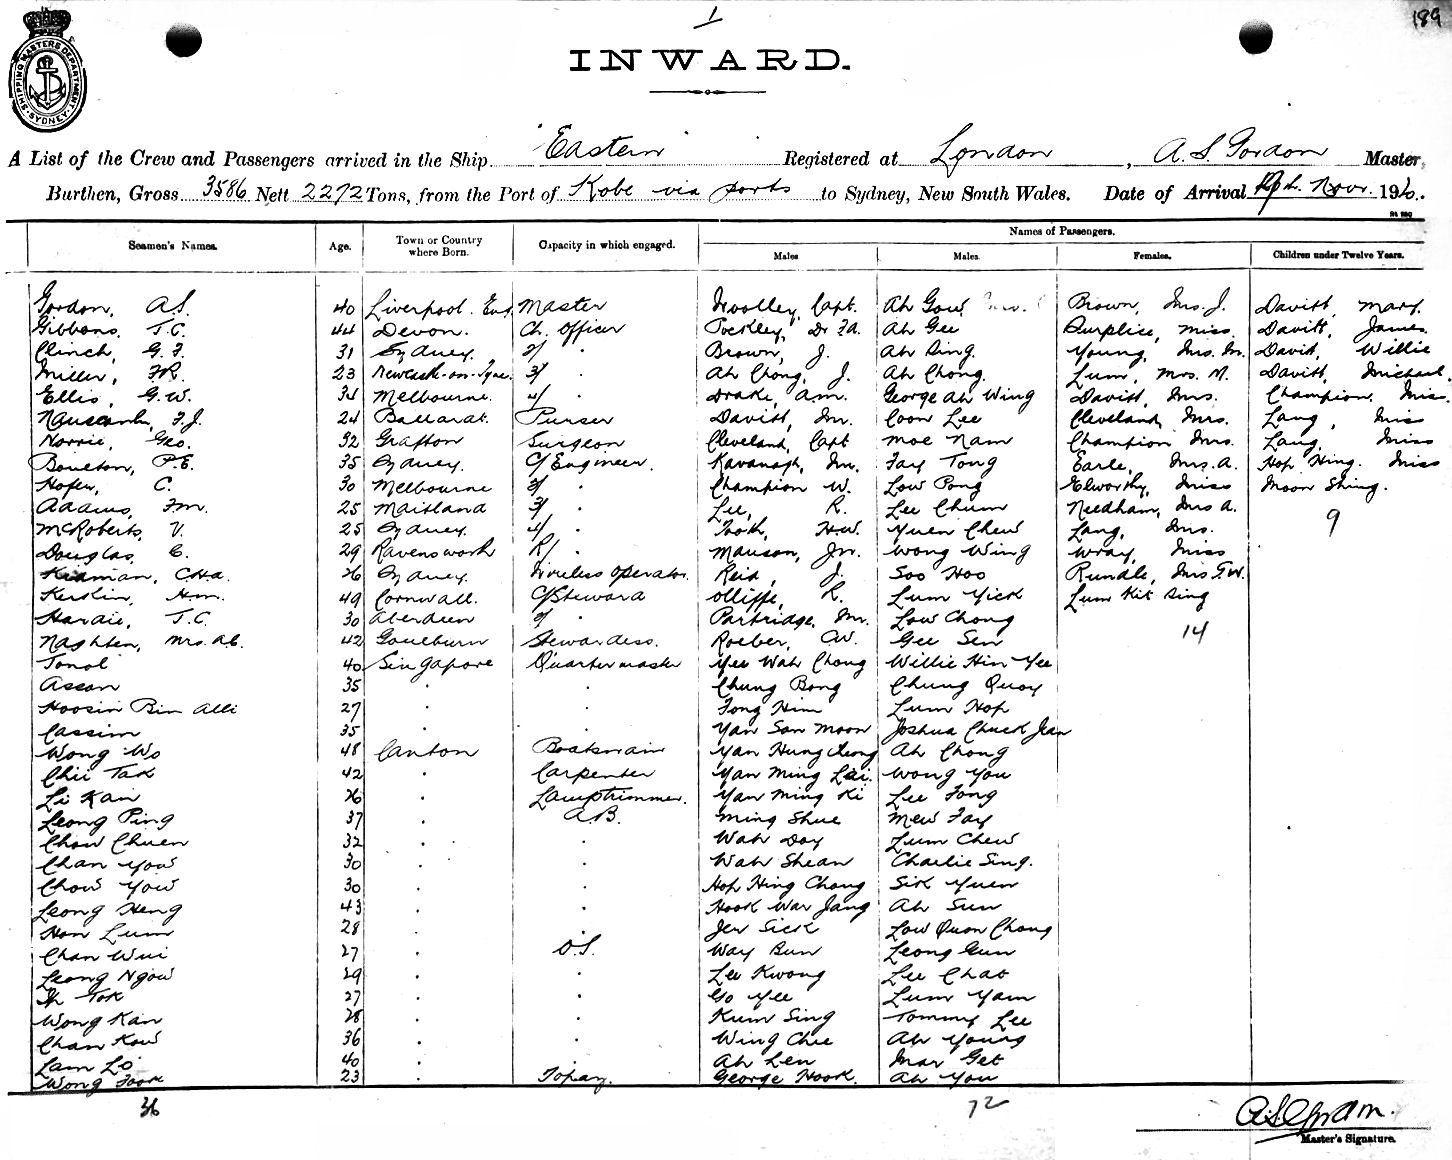 1
189
SHIPPING MASTERS DEPARTMENT SYDNEY
INWARD.
A List of the Crew and Passengers arrived in the Ship "Eastern" Registered at London, A. S. Gordon Master,
Burthen, Gross 3586 Nett 2272 Tons, from the Port of Kobe via ports to Sydney, New South Wales. Date of Arrival Novr. 19
Names of Passengers.
Seamen's Names. Age. Town or Country where Born. Capacity in which engaged. Males Males. Females. Children under Twelve Years.
Gordon, A.S. 40 Liverpool. Eng. Master Woolley, Capt. Ah Gow Brown, Mrs J. Davitt, Mary.
Gibbons, T.C. 44 Devon. Ch. Officer Pockley, Dr F.A. Ah Gee Surplice, Miss. Davitt, James.
Clinch, G.F. 31 Sydney. 2/ . Brown, J. Ah Sing. Young, Mrs. M. Davitt, Willie
Miller, F.R. 23 Newcastle-on-Tyne. 3/ . Ah Chong, J. Ah Chong. Lum, Mrs. M. Davitt, Michael.
Ellis, G.W. 34 Melbourne. 4/ . Drake, A.M. George Ah Wing Davitt, Mrs. Champion, Miss.
F.J. 24 Ballarat. Purser Davitt, Mr. Coon Lee Cleveland, Mrs. Lang, Miss
Norrie, Geo. 32 Grafton Surgeon Cleveland, Capt Moe Nam Champion Mrs. Lang, Miss
Boulton, P.E. 35 Sydney. C/Engineer. Kavanagh, Mr. Fay Tong Earle, Mrs. A. Hop Hing. Miss
Hofer, C. 30 Melbourne 2/ . Champion W. Low Pong Elworthy, Miss Moon Shing.
Adams, F.M. 25 Maitland 3/ . Lee, R. Lee Chum Needham, Mrs A. 9
McRoberts, V. 25 Sydney. 4/ . Tooth, H.W. Yuen Chew Lang, Mrs.
Douglas, C. 29 Ravensworth R/ . Manson, Jn. Wong Wing Wray, Miss
Kidman, Chas. 26 Sydney. Wireless Operator. Reid, J. Soo Hoo Rundle, Mrs F.W.
Kerkin, Hm. 49 Cornwall. C/Steward Olliffe, R. Lum Yick Lum Kit Sing
Hardie, T.C. 30 Aberdeen 2/ . Partridge, Mr. Low Chong 14
Naghten, Mrs. A.C. 42 Goulburn Stewardess. Roeber, C.W. Gee Sen
Tonol 40 Singapore Quartermaster Yee Wah Chong Willie Hin Yee
Assan 35 . . Chung Bong Chung Quoy
Hoosin Bin Alli 27 . . Fong Him Lum Hop
Cassim 35 . . Yan San Moon Joshua Chuck Jean
Wong Wo 48 Canton Boatswain Yan Hung Cheong Ah Chong
Chii Tak 42 . Carpenter Yan Ming Lai. Wong You
Li Kan 26 . Lamptrimmer. Yan Ming Ki Lee Fong
Leong Ping 37 . A.B. Ming Shue Mew Fay
Chow Chuen 32 . . Wah Day Lum Chew
Chan Yow 30 . . Wah Shean Charlie Sing.
Chow Yow 30 . . Hop Hing Chong Sik Yuen
Leong Heng 43 . . Hook War Jang Ah Sun
Hon Lum 28 . . Jew Sick Low Quon Chong
Chan Wui 27 . O.S. Way Bun Leong Gun
Leong Ngow 29 . . Lee Kwong Lee Chat
Tok 27 . . Go Yee Lum Yam
Wong Kan 28 . . Kum Sing Tommy Lee
Chan Kow 36 . . Wing Chee Ah Young
Lam Lo 40 . . Ah Len Mar Get
Wong Fook 23 . Topay. George Hook. Ah You
36
72
A.S. Gordon.
Master's Signature.